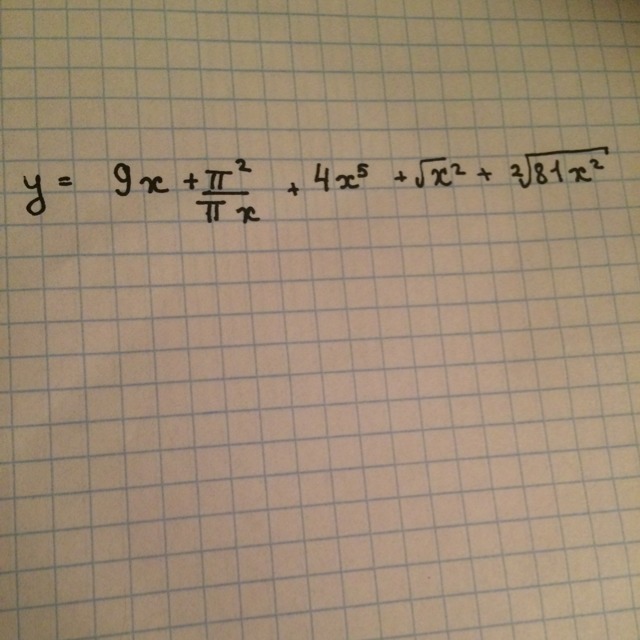 y = 9x + π²/πx + 4x⁵ + √x² + ²√81x²